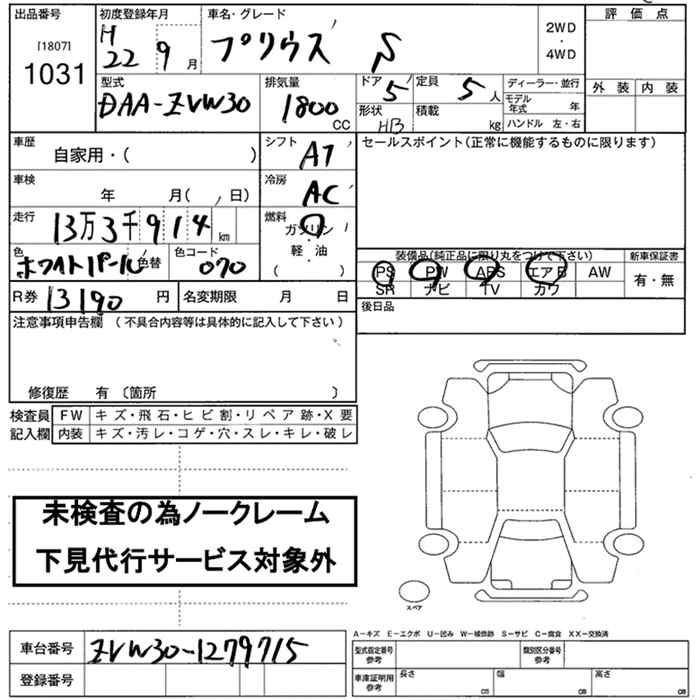 出品番号
[1807]
1031
初度登録年月
H
22 9 月
車名・グレード
プリウス S
2WD
・
4WD
評価点
外装 内装
型式
DAA-ZVW30
排気量
1800
CC
ドア
5
形状
HB
定員
5 人
積載
kg
ディーラー・並行
モデル年式 年
ハンドル 左・右
車歴
自家用・( )
シフト
AT
セールスポイント(正常に機能するものに限ります)
車検
年 月( , 日)
冷房
AC
走行
13万3千914 km
燃料
ガソリン
・
軽・油
( )
色
ホワイトパール
色替
色コード
070
装備品(純正品に限り丸をつけて下さい)
PS PW ABS エアB AW
SR ナビ TV カワ
新車保証書
有・無
R券 13190 円
名変期限 月 日
後日品
注意事項申告欄 (不具合内容等は具体的に記入して下さい)
修復歴 有 〔箇所 〕
検査員
記入欄
FW キズ・飛石・ヒビ割・リペア跡・X要
内装 キズ・汚レ・コゲ・穴・スレ・キレ・破レ
未検査の為ノークレーム
下見代行サービス対象外
スペア
車台番号 ZVW30-1279715
登録番号
A-キズ E-エクボ U-凹み W-補修跡 S-サビ C-腐食 XX-交換済
型式指定番号
参考
類別区分番号
参考
車庫証明用
参考
長さ cm
幅 cm
高さ cm